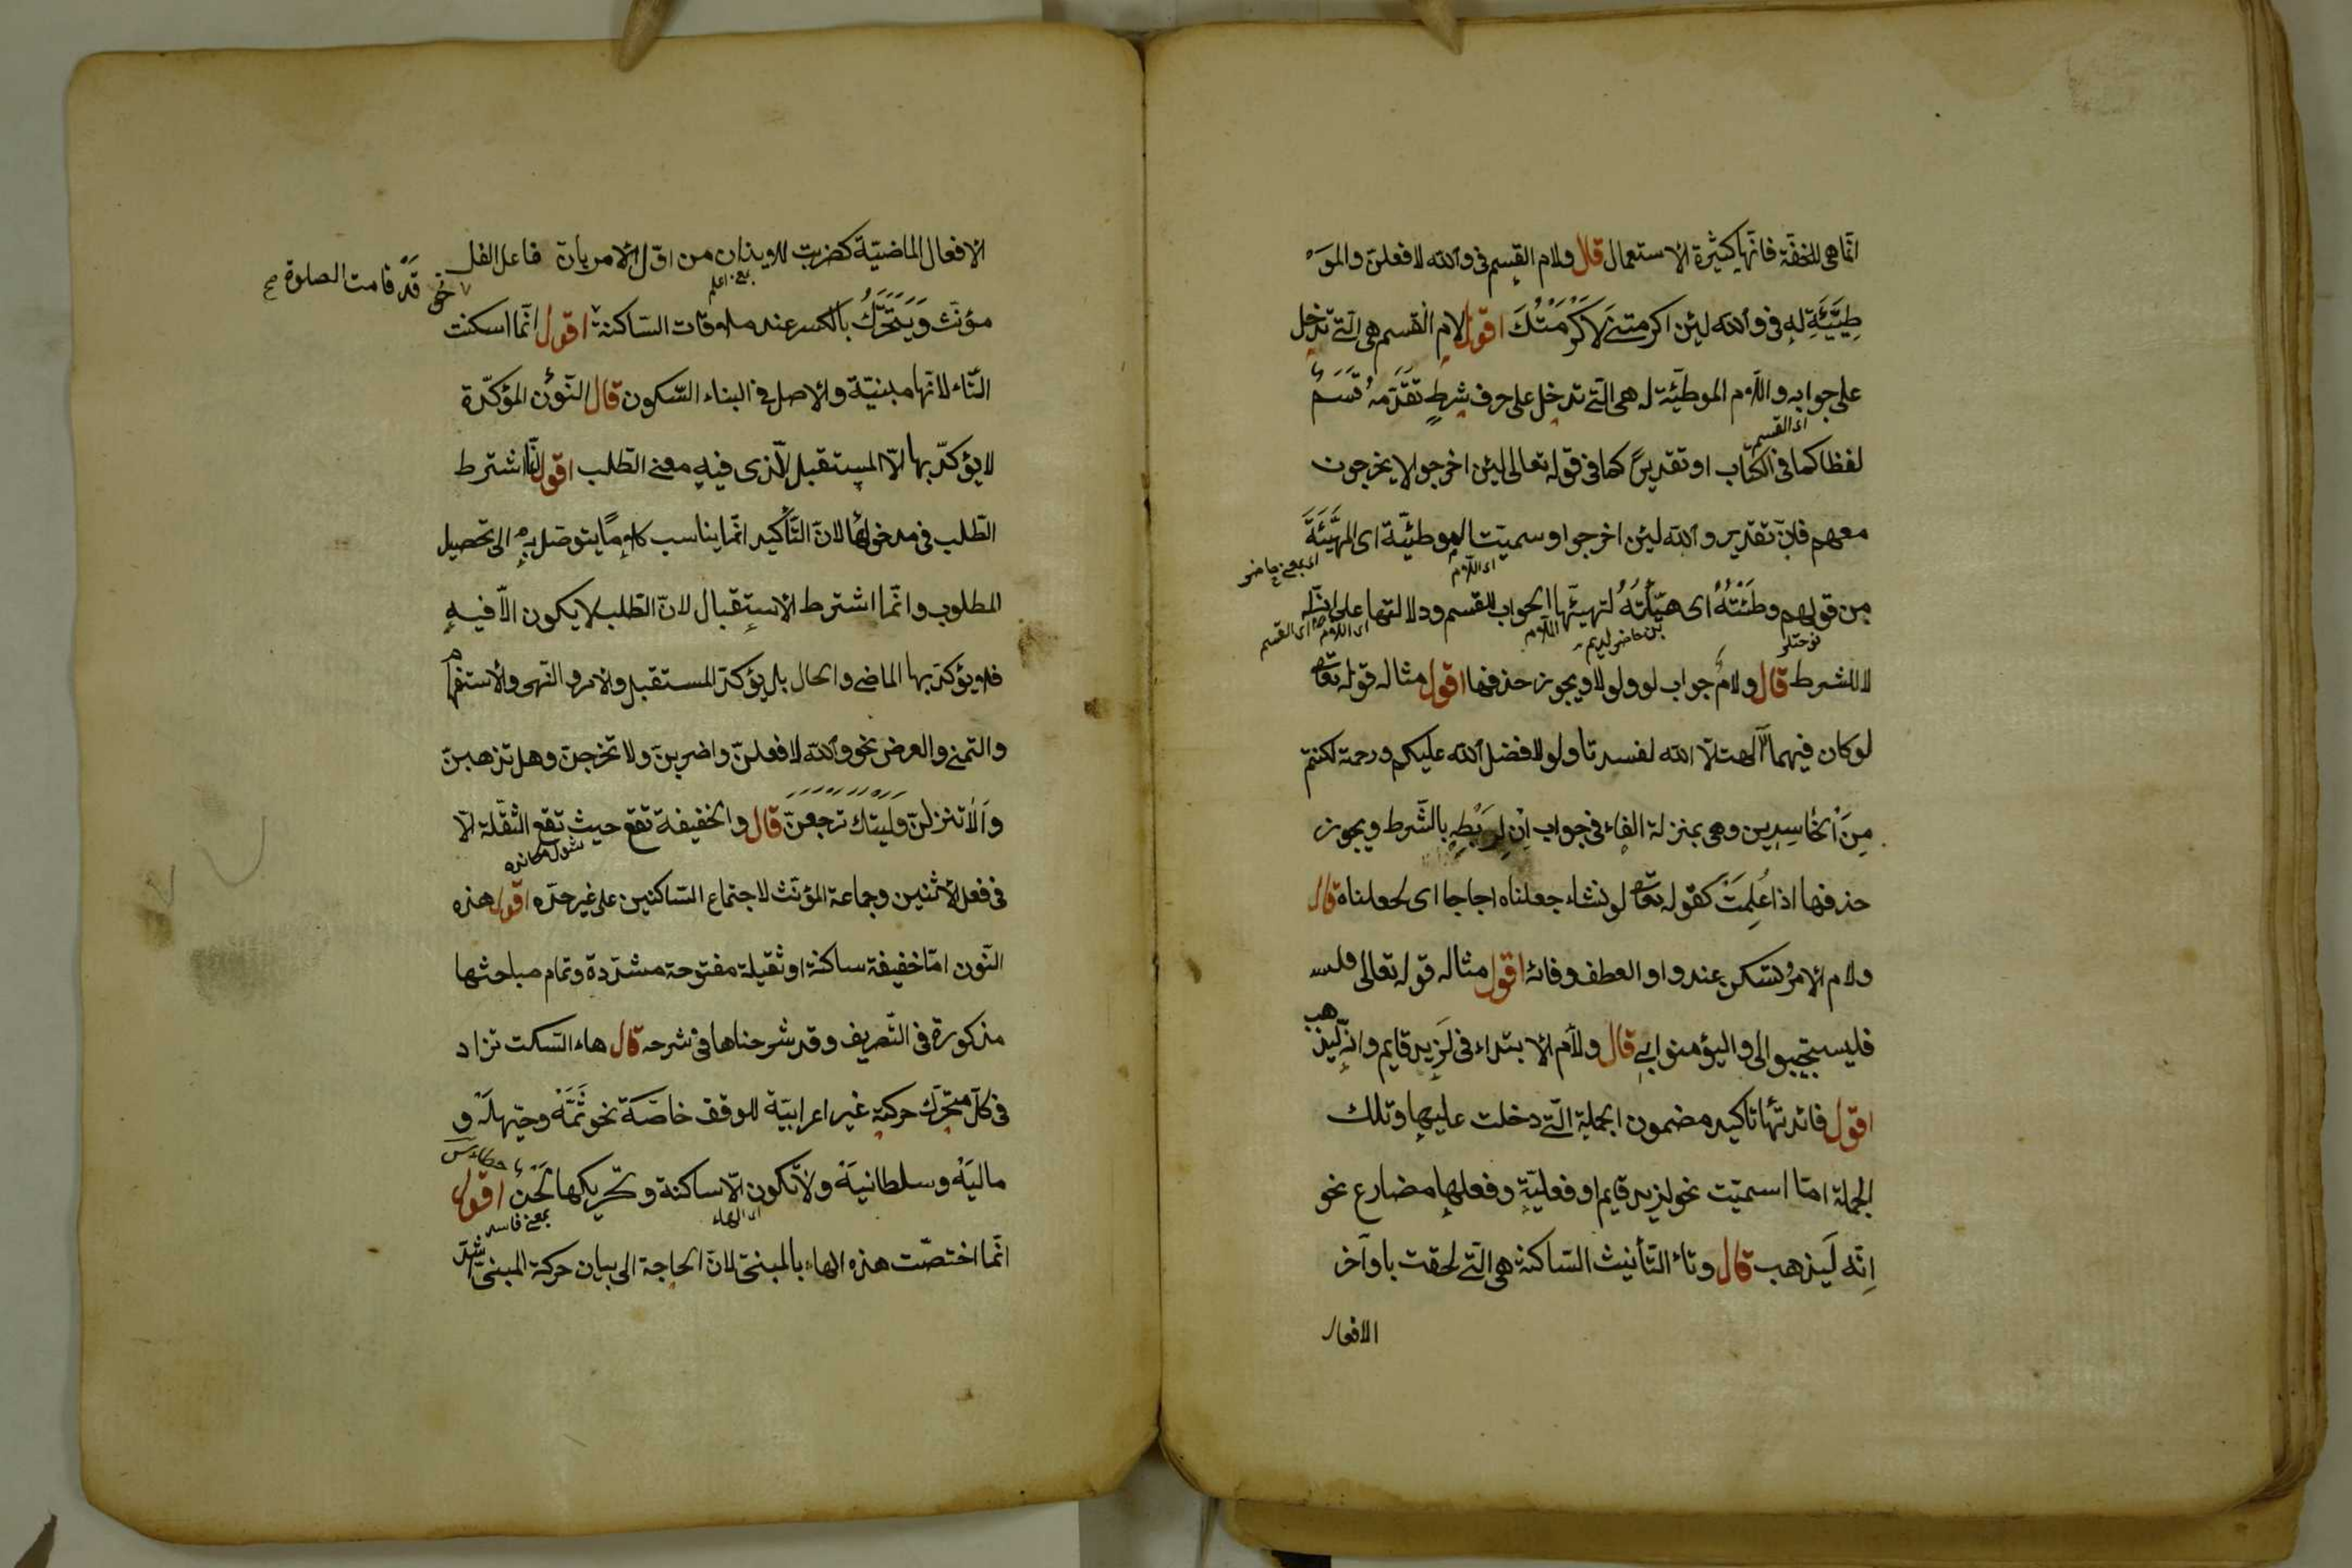 انّما هى للخفّة فانّها كثيرة الاستعمال قال ولام القسم فى والله لافعلنّ والمو
طِيَّئَةِ له فى والله لئن اكرمتنى لَاَكْرَمْتُكَ اقول لام القسم هى الّتى تدخل
على جوابه واللّام الموطيّئة له هى الّتى تدخل على حرف شرطٍ تَقَدَّمَهُ قَسَمٌ
اى القسم
لفظا كما فى الكتاب او تقديرً كما فى قوله تعالى لئن اخرجوا لا يخرجون
معهم فانّ تقديره والله لئن اخرجوا وسميّت الموطئيّة اى المهَّيَئَةَ
اى اللّام
اى بمعنى حاضر
من قولهم وطَئتهُ اى هيّأتَهُ لتهيئتها الجواب للقسم ودلالتها على انّه له
اللّام
اى اللّام
اى القسم
لا للشرط قال ولامُ جواب لو ولولا ويجوز حذفها اقول مثاله قوله تعا
لو كان فيهما آلهت الّا الله لفسدتا ولولا فضل الله عليكم ورحمة لكنتم
مِنَ اْلخَاسِرين وهى بمنزلة الفاء فى جواب اِن لِرَبْطِهِ بالشّرط ويجوز
حذفها اذا عُلِمَتْ كقوله تعا لو نشاء جعلناه اجاجا اى لجعلناه قال
ولام الامر تسكن عند واو العطف وفائه اقول مثاله قوله تعالى فليس
فليستجيبوا لى واليؤمنوا بى قال ولَام الابتداء فى لَزيد قايم وانّه ليذهب
اقول فائدتُها تاكيد مضمون الجملة الّتى دخلت عليها وتلك
الجملة امّا اسميّت نحو لزيد قايم او فعليّة وفعلها مضارع نحو
اِنّه لَيذهب قال وتاء التّأنيث السّاكنة هى الّتى لحقت باوآخر
الافعال
الافعال الماضيّة كضربت للايذان من اوّل الامر بانّ فاعل الفعل
بمعنى اعلم
نحو قد قامت الصلوة صح
مؤنّث وَيَتَحَرَّكُ بالكسر عند ملاقات السّاكنة اقول انّما اسكنت
التّاء لانّها مبنيّة والاصل فى البناء السّكون قال النّون المؤكّدة
لا يؤكّد بها الّا المستقبل الّذى فيهِ معنى الطّلب اقول انّما اشترط
الطّلب فى مدخولها لانّ التّأكيد انّما يناسب كلامًا يتوصّل به الى تحصيل
المطلوب وانّما اشترط الاستقبال لانّ الطّلب لا يكون الّا فيهِ
فلا يؤكّد بها الماضى والحال بل يؤكّد المستقبل والامر والنّهى والاستفهام
والتمنّى والعرض نحو والله لافعلنّ واضربنّ ولا تخرجنّ وهل تذهبنّ
وَاَلا تنزلنّ وَليتك ترجعنّ قال والخفيفة تقع حيث تقع الثقّلة الّا
فى فعل الاثنين وجماعة المؤنّث لاجتماع السّاكنين على غير حدّه اقول هذه
النّون امّا خفيفة ساكنة او ثقيلة مفتوحة مشدّدة وتمام مباحثها
مذكورة فى التّصريف وقد شرحناها فى شرحه قال هاء السّكت تزاد
فى كلّ متحرّك حركته غير اعرابيّة للوقف خاصّة نحو ثَمَّهْ وحيّهلَهْ و
ماليَهْ وسلطانيَهْ ولا تكون الّا ساكنة وتحريكها لَحْنٌ اقول
اى الهاء
بمعنى فاسد
انّما اختصّت هذه الهاء بالمبنىّ لانّ الحاجة الى بيان حركة المبنىّ اشدّ